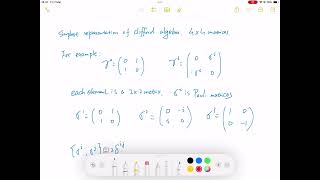 Simplest representation of Clifford algebra 4x4 matrices
For example:
γ⁰ = ( 0 1 ; 1 0 ) γⁱ = ( 0 σⁱ ; -σⁱ 0 )
each element is a 2x2 matrix. σⁱ is Pauli matrices
σ¹ = ( 0 1 ; 1 0 ) σ² = ( 0 -i ; i 0 ) σ³ = ( 1 0 ; 0 -1 )
{σⁱ, σʲ} = 2δⁱʲ